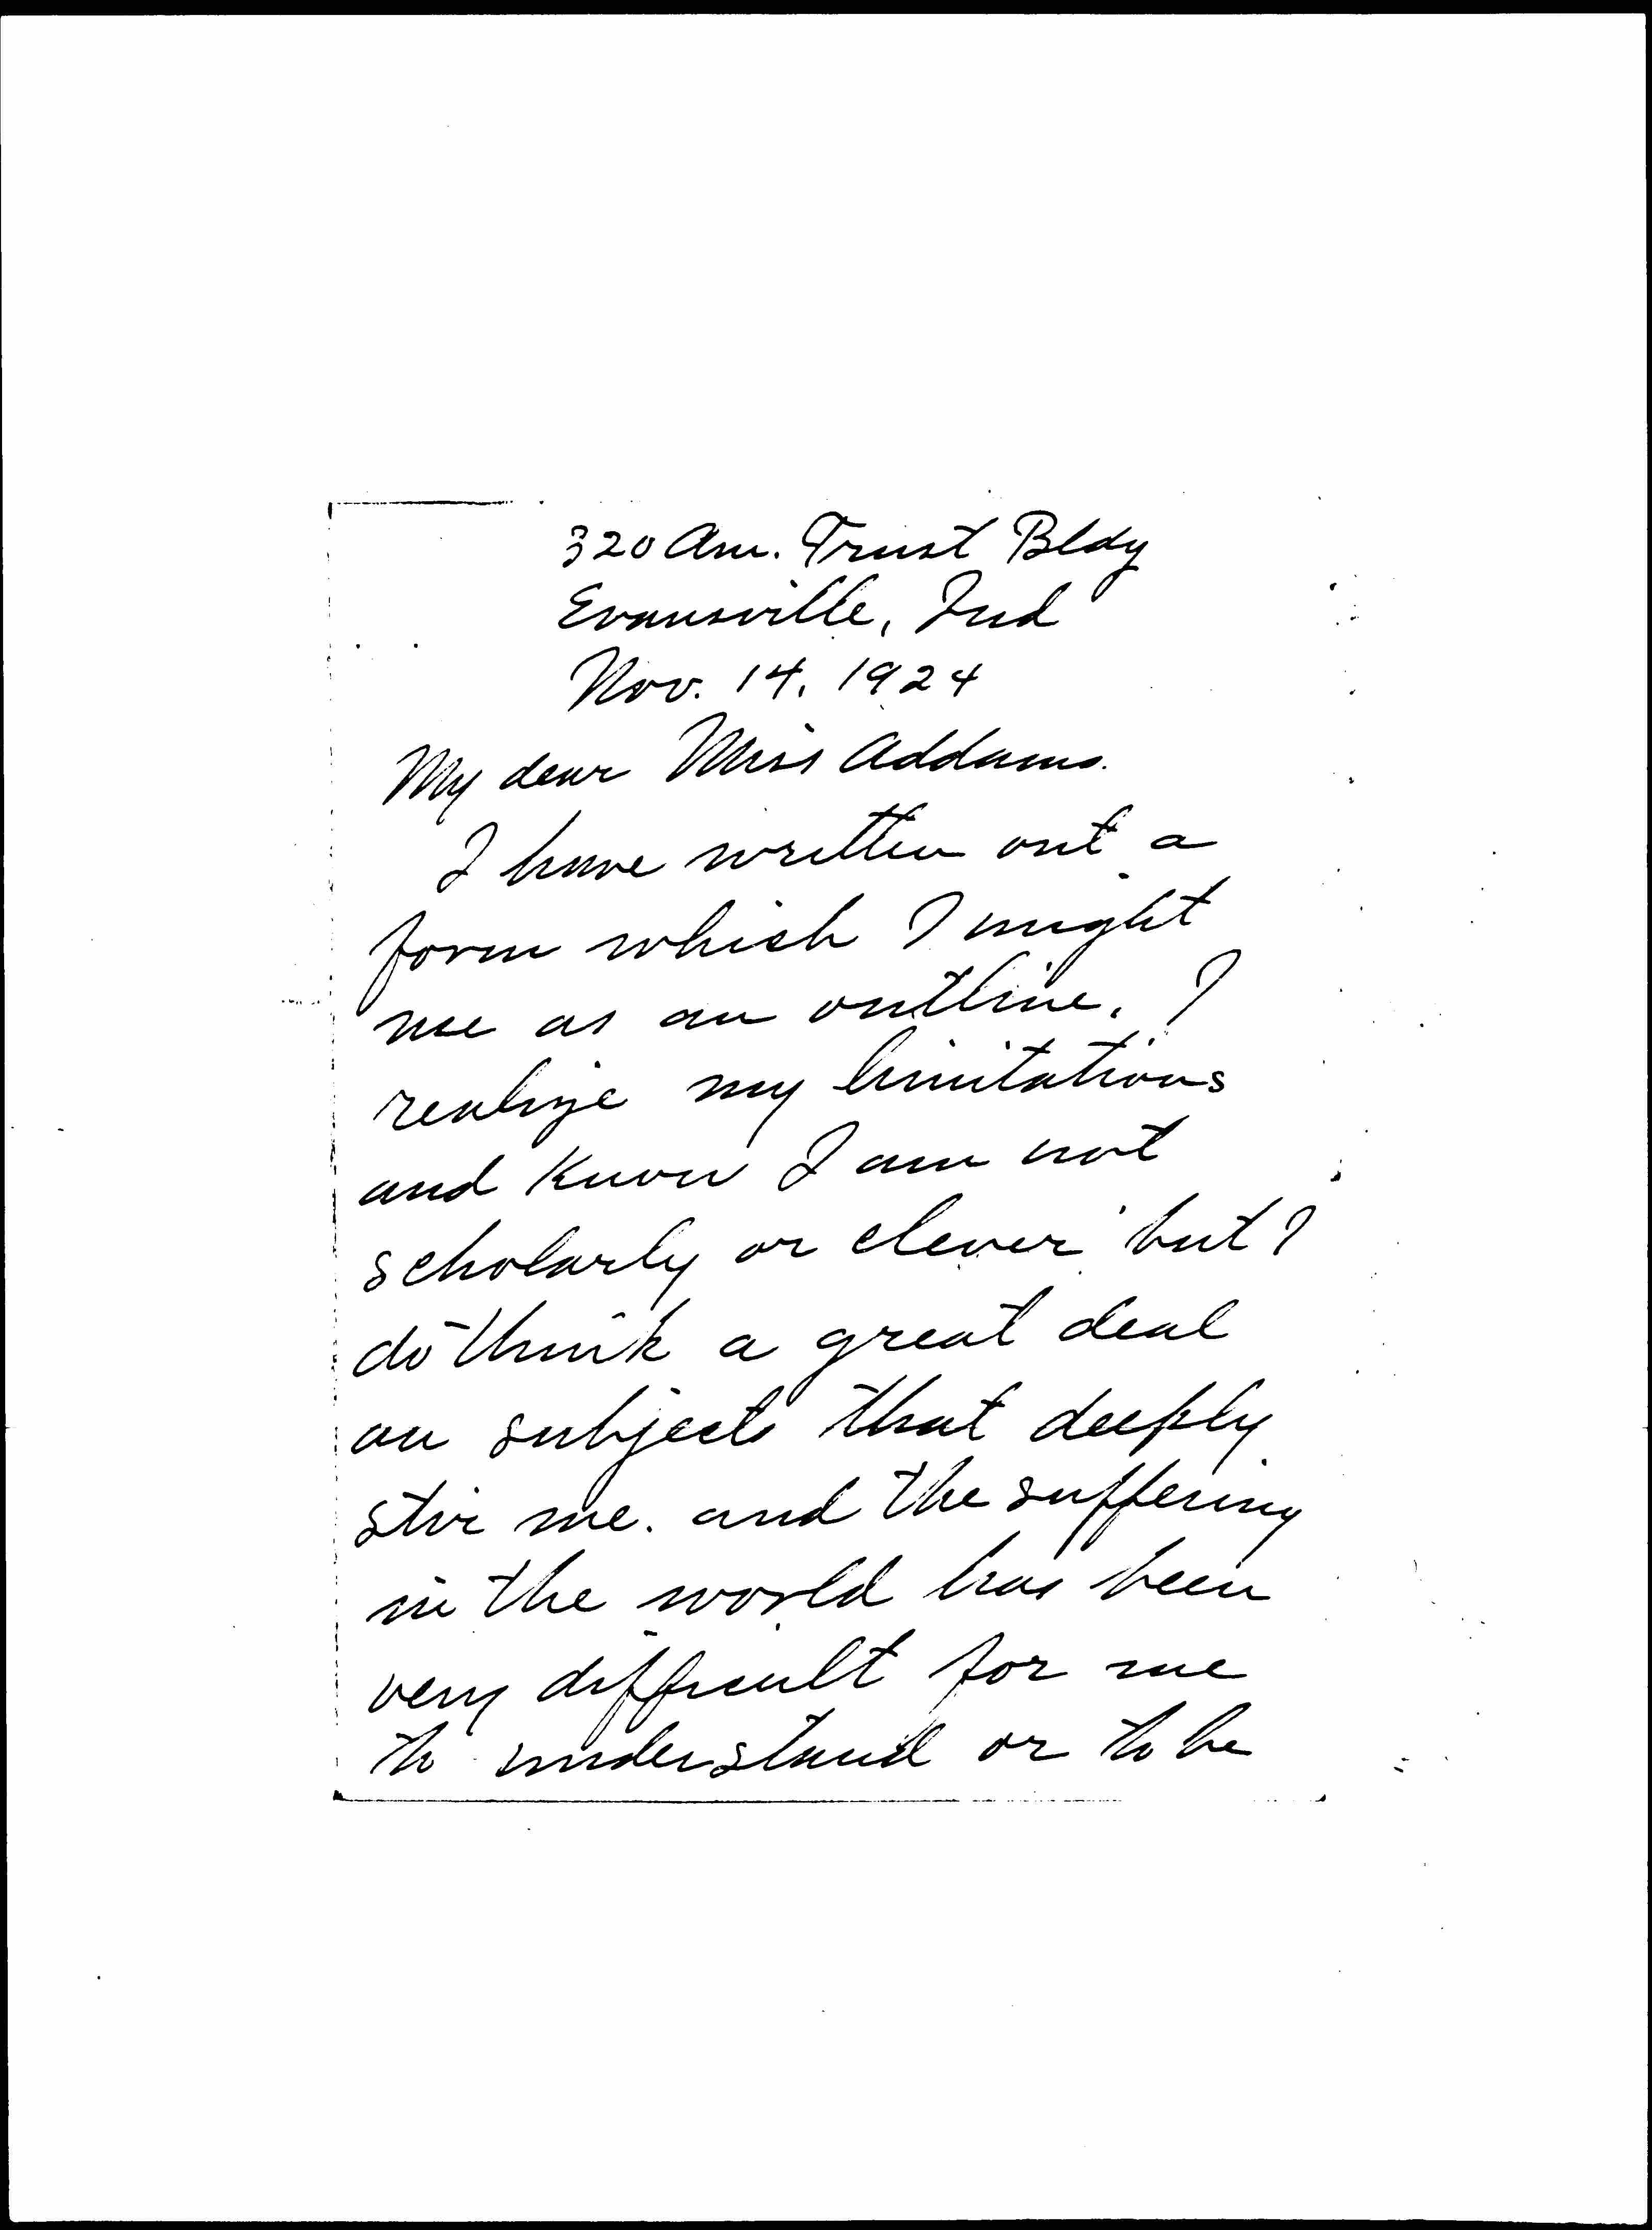 320 Am. Trust Bldg
Evansville, Ind
Nov. 14, 1924
My dear Miss Addams.
I have written out a
form which I might
use as an outline. I
realize my limitations
and know I am not
scholarly or clever but I
do think a great deal
on subjects that deeply
stir me. and the suffering
in the world has been
very difficult for me
to understand or to be